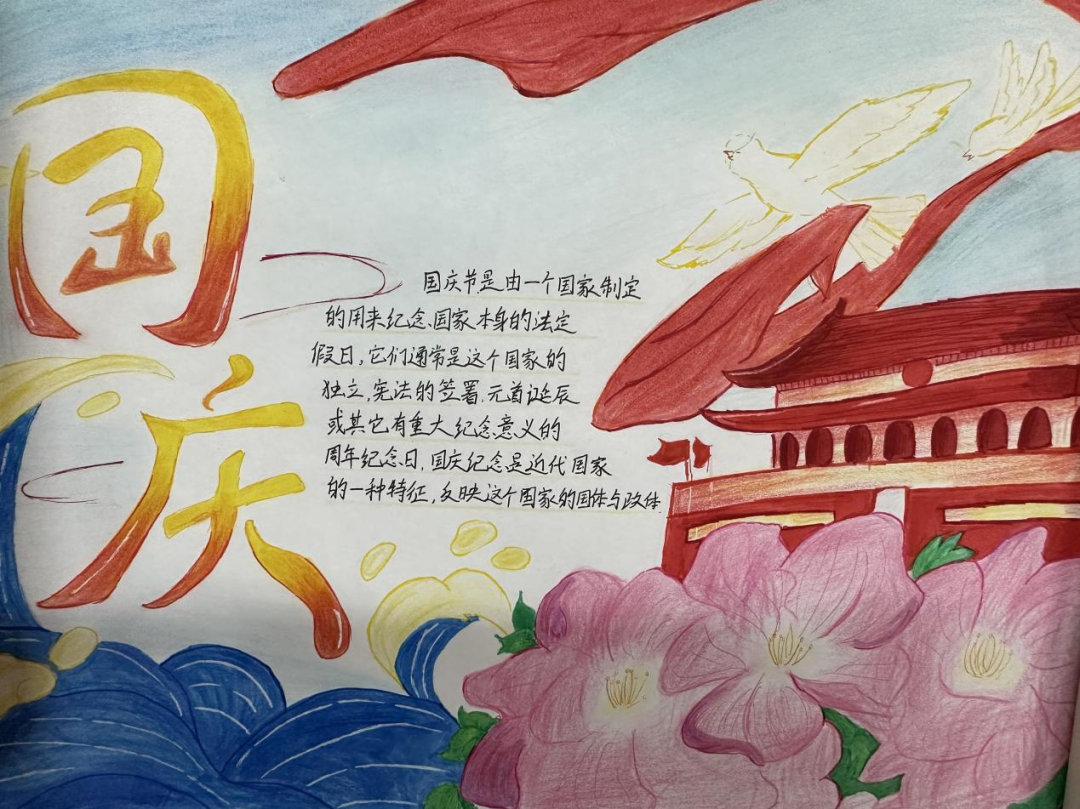 国庆
国庆节是由一个国家制定
的用来纪念、国家本身的法定
假日，它们通常是这个国家的
独立，宪法的签署，元首诞辰
或其它有重大纪念意义的
周年纪念日，国庆纪念是近代国家
的一种特征，反映这个国家的国体与政体